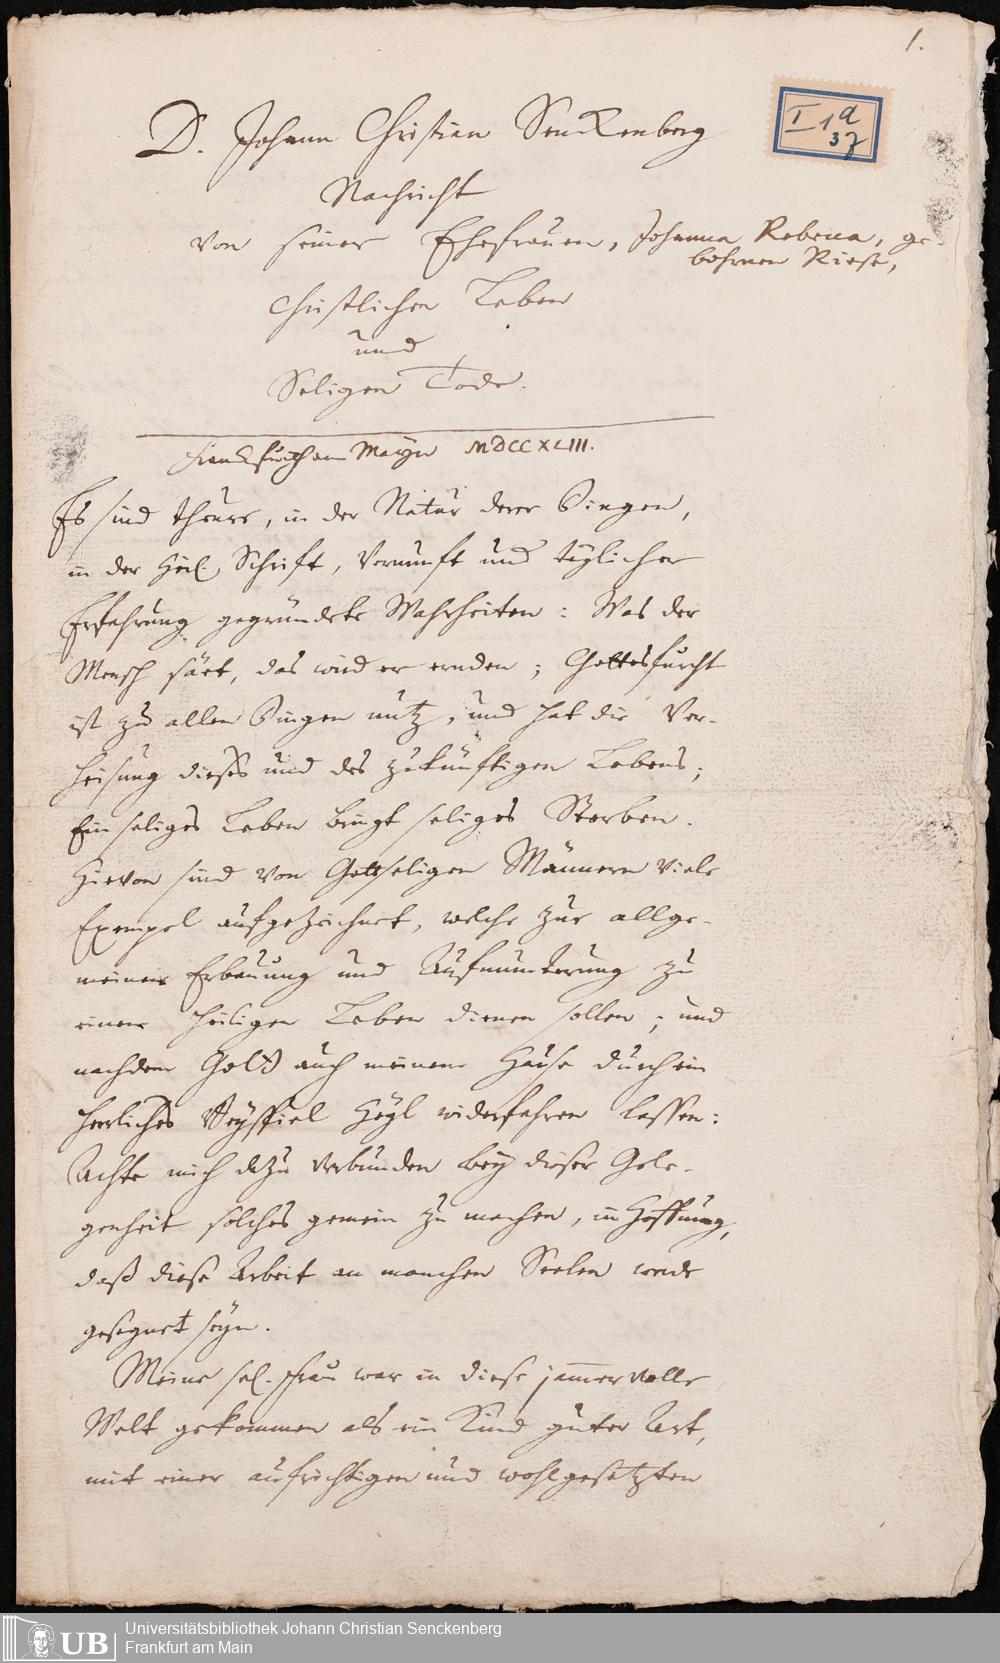 1.
I 1 a
37
D. Johann Christian Senckenberg
Nachricht
von seiner Ehefrauen, Johanna Rebecca, ge
bohrnen Riese,
Christlichen Leben
und
Seligen Tode.
Franckfurth am Mayn MDCCXLIII.
Es sind theure, in der Natur derer Dingen,
in der Heil. Schrift, Vernunft und täglicher
Erfahrung gegründete Wahrheiten: Was der
Mensch säet, das wird er ernden; Gottesfurcht
ist zu allen Dingen nutz, und hat die Ver-
heisung dieses und des zukünftigen Lebens;
Ein seliges Leben bringt seliges Sterben.
Hievon sind von Gottseligen Männern viele
Exempel aufgezeichnet, welche zur allge-
meinen Erbauung und Aufmunterung zu
einem heiligen Leben dienen sollen; und
nachdem Gott auch meinem Hause durch ein
herrliches Beyspiel Heyl widerfahren lassen:
Achte mich dazu verbunden bey dieser Gele-
genheit solches gemein zu machen, in Hoffnung,
daß diese Arbeit an manchen Seelen werde
gesegnet seyn.
Meine sel. Frau war in diese jamervolle
Welt gekommen als ein Kind guter Art,
mit einer aufrichtigen und wohlgesetzten
UB
Universitätsbibliothek Johann Christian Senckenberg
Frankfurt am Main